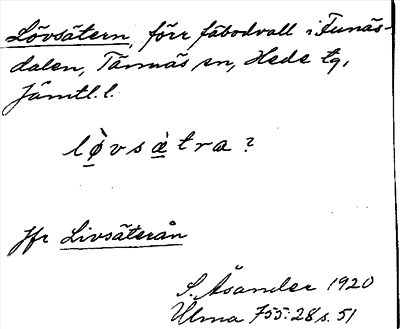 Lövsätern, förr fäbodvall i Funäs-
dalen, Tännäs sn, Hede tg,
Jämtl. l.
lø̀vsa̠̍tra?
Jfr Livsäterån
S. Åsander 1920
Ulma 755:28 s. 51